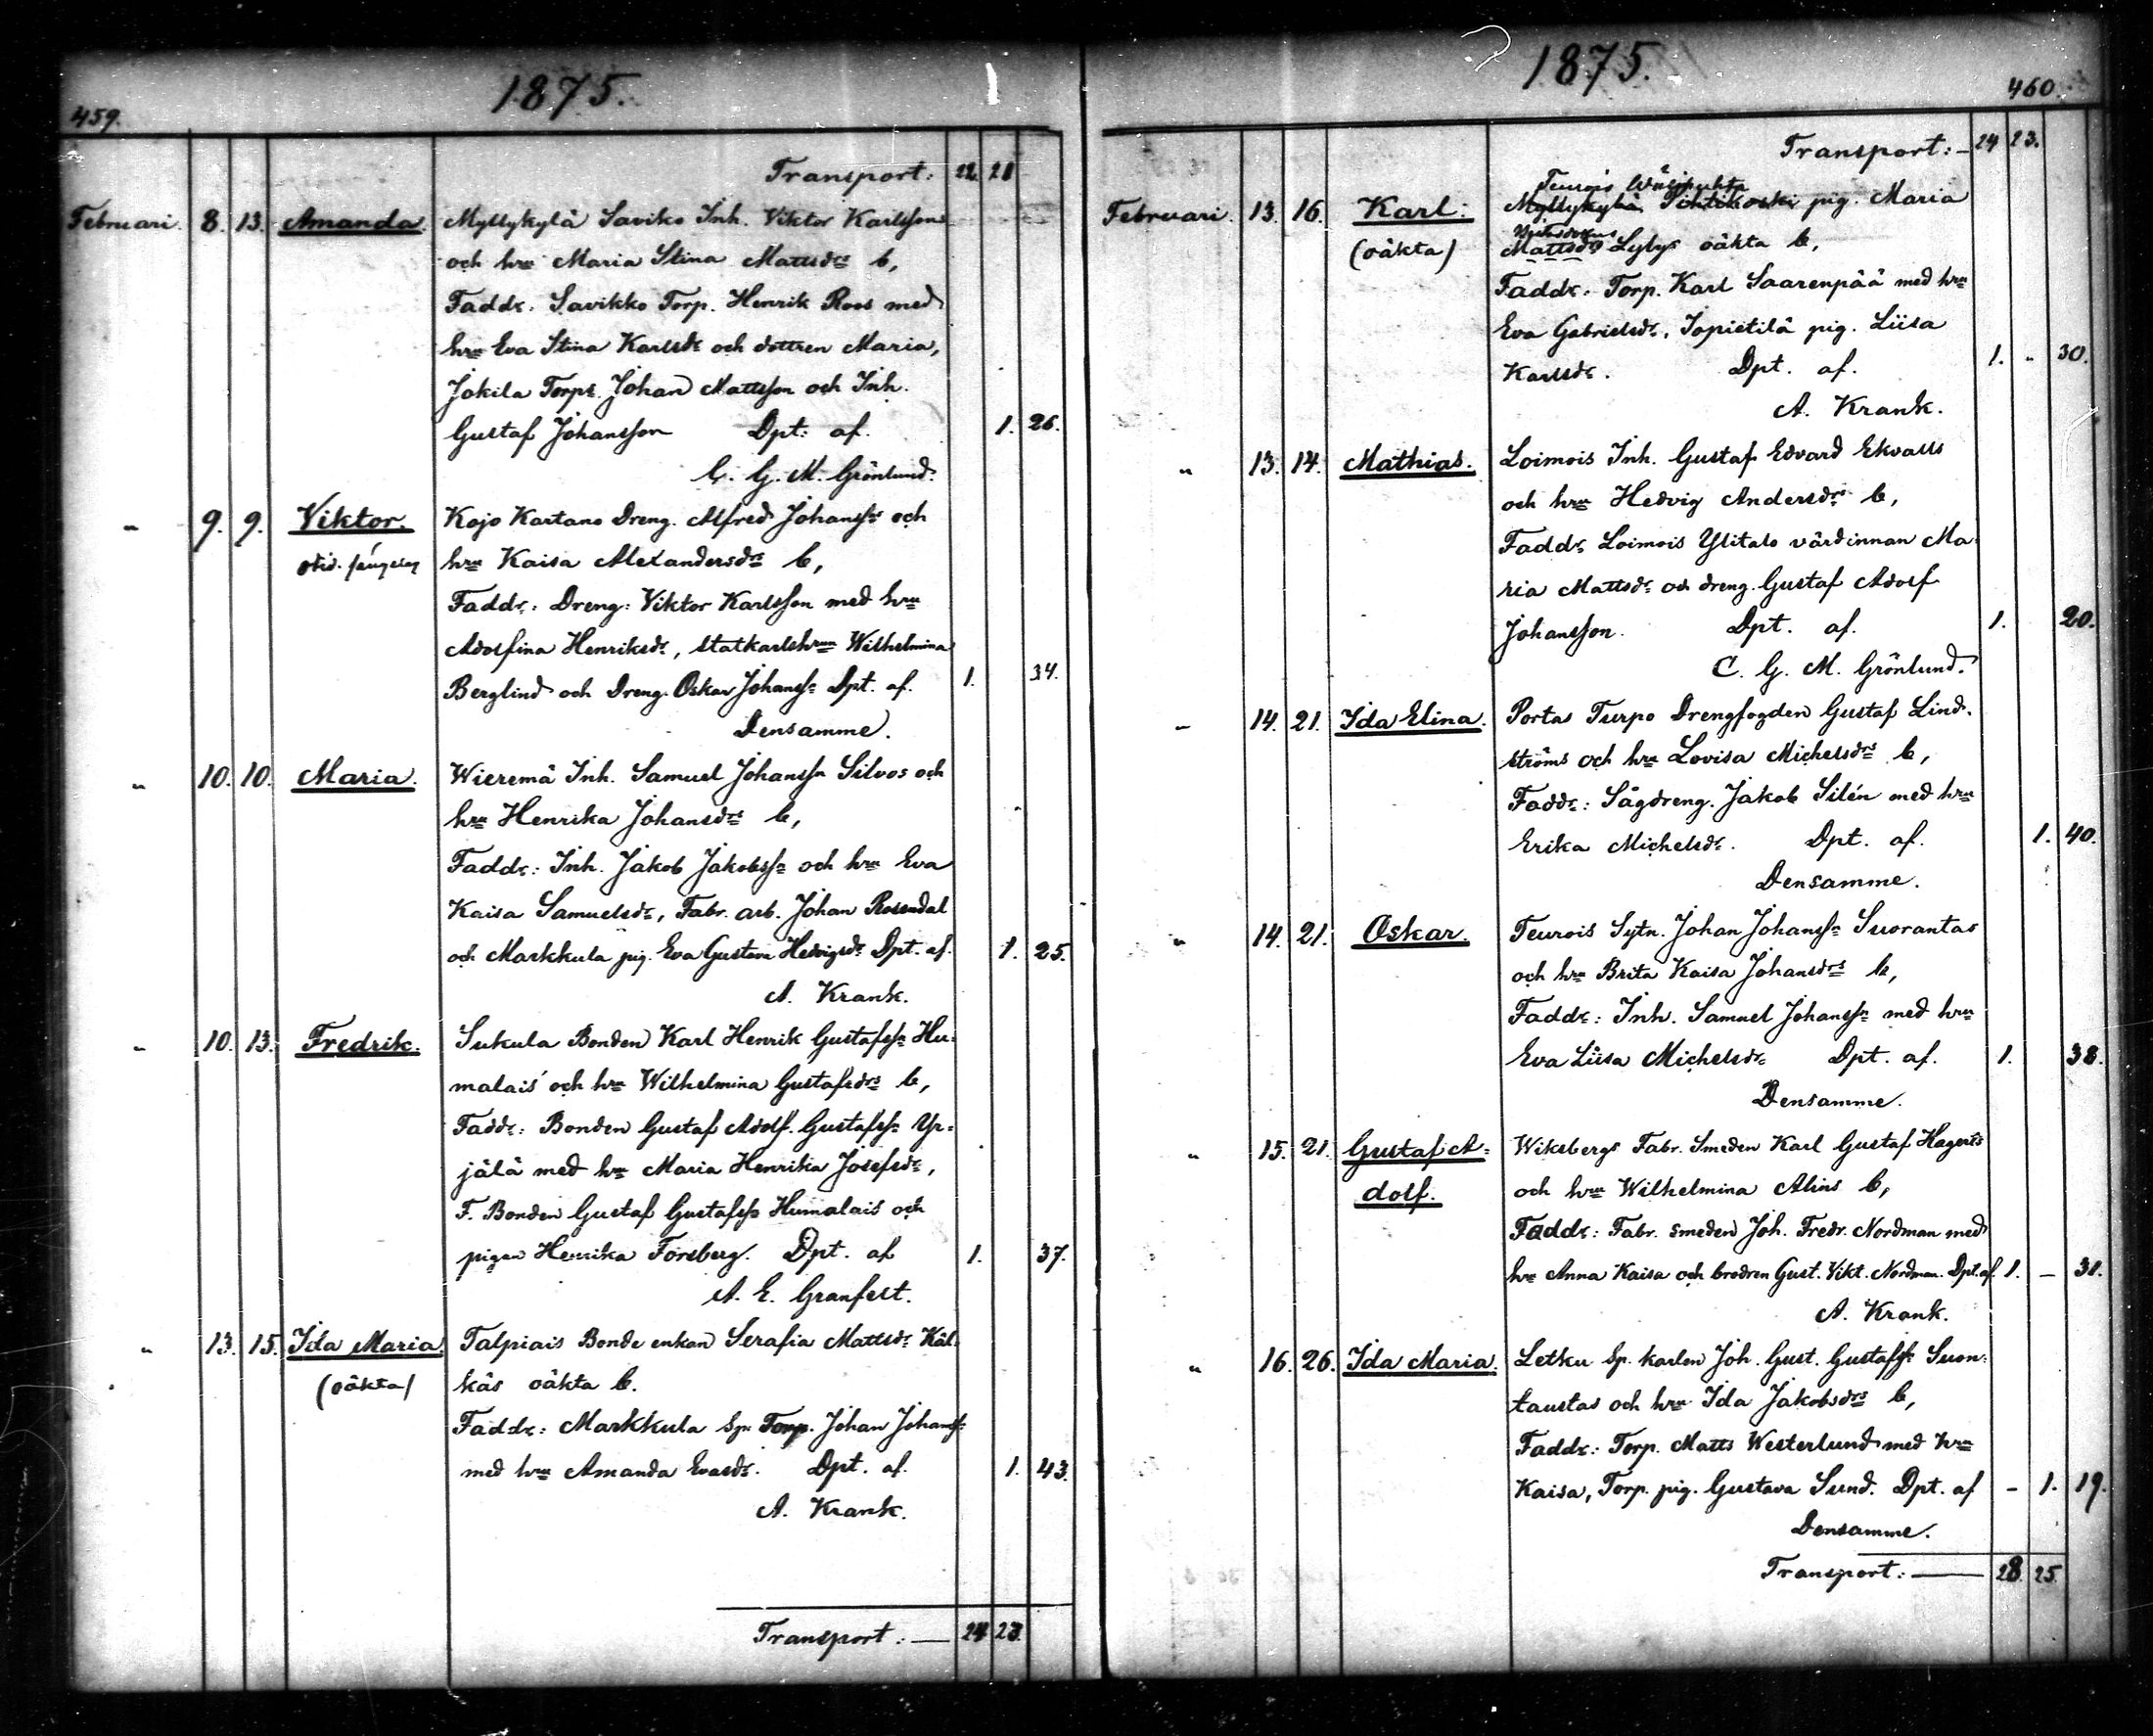 459.
1875.
Transport: 22. 21
Februari. 8. 13. Amanda. Myllykylä Saviko Inh. Viktor Karlssons
och hru Maria Stina Mattsdrs b,
Faddr. Savikko Torp. Henrik Roos med
hru Eva Stina Karlsdr och dottren Maria,
Jokila Torps. Johan Mattsson och Inh.
Gustaf Johansson Dpt: af. 1. 26.
C. G. M. Grönlund.
" 9. 9. Viktor. Kojo Kartano Dreng. Alfred Johanss: och
hru Kaisa Alexandersdrs b,
Faddr: Dreng: Viktor Karlsson med hru
Adolfina Henriksdr, statkarlshrun Wilhelmina
Berglind och Dreng. Oskar Johanss: Dpt. af. 1. 34.
Densamme.
" 10. 10. Maria. Wieremä Inh. Samuel Johanssn Silvos och
hru Henrika Johansdrs b,
Faddr: Inh. Jakob Jakobss: och hru Eva
Kaisa Samuelsdr, Fabr. arb. Johan Rosendal
och Markkula pig. Eva Gustava Hedvigsdr Dpt. af. 1. 25.
A. Krank.
" 10. 13. Fredrik. Sukula Bonden Karl Henrik Gustafss: Hu-
malais och hru Wilhelmina Gustafsdrs b,
Faddr: Bonden Gustaf Adolf Gustafss: Yr-
jälä med hru Maria Henrika Josefsdr,
F. Bonden Gustaf Gustafss: Humalais och
pigan Henrika Forsberg. Dpt. af 1. 37.
A. E. Granfelt.
" 13. 15. Ida Maria. Talpiais Bonde enkan Serafia Mattsdr Käl-
(oäkta) käs oäkta b.
Faddr: Markkula Sp. Torp. Johan Johanss:
med hru Amanda Evasdr. Dpt. af. 1. 43.
A. Krank.
Transport: 24 23.
460.
1875.
Transport: 24 23.
Teurois
Februari. 13. 16. Karl: Myllykylä pig. Maria
(oäkta) Mattsdr Lylys oäkta b,
Faddr. Torp. Karl Saarenpää med hru
Eva Gabrielsdr, Iopietilä pig. Liisa
Karlsdr. Dpt. af. 1. " 30.
A. Krank.
" 13. 14. Mathias. Loimois Inh. Gustaf Edvard Ekvalls
och hru Hedvig Andersdrs b,
Faddr. Loimois Ylitalo värdinnan Ma-
ria Mattsdr och dreng. Gustaf Adolf
Johansson. Dpt. af. 1. 20.
C. G. M. Grönlund.
" 14. 21. Ida Elina. Portas Turpo Drengfogden Gustaf Lind-
ströms och hru Lovisa Michelsdrs b,
Faddr: Sågdreng. Jakob Silén med hru
Erika Michelsdr. Dpt. af. 1. 40.
Densamme.
" 14. 21. Oskar. Teurois Sytn. Johan Johanss: Suorantas
och hru Brita Kaisa Johansdrs b,
Faddr: Inh. Samuel Johanss: med hru
Eva Liisa Michelsdr Dpt. af. 1. 38.
Densamme.
" 15. 21. Gustaf A- Wiksbergs Fabr. Smeden Karl Gustaf Hagerts
dolf. och hru Wilhelmina Alins b,
Faddr: Fabr. smeden Joh. Fredr. Nordman med
hru Anna Kaisa och brodren Gust. Vikt. Nordman. Dpt. af 1. — 31.
A. Krank.
" 16. 26. Ida Maria. Letku Sp. karlen Joh. Gust. Gustafss: Suon-
taustas och hru Ida Jakobsdrs b,
Faddr: Torp. Matts Westerlund med hru
Kaisa, Torp. pig. Gustava Sund. Dpt. af - 1. 19.
Densamme.
Transport: 28. 25.